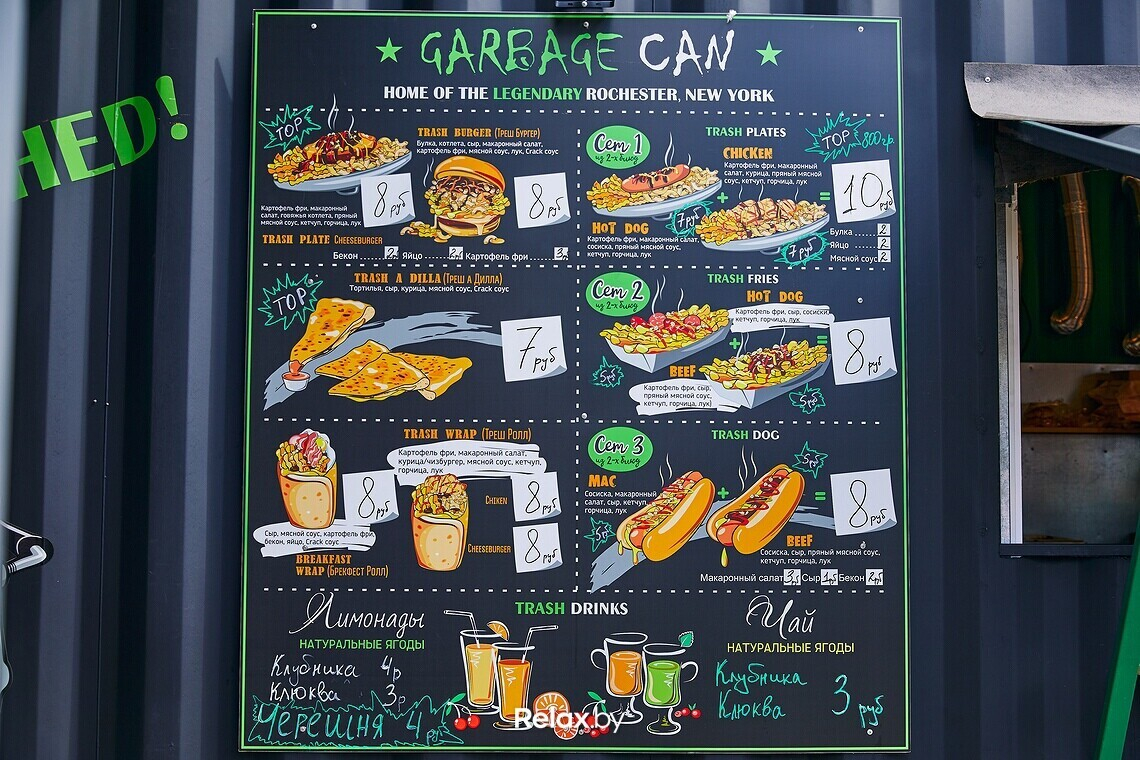 HED!
GARBAGE CAN
HOME OF THE LEGENDARY ROCHESTER, NEW YORK
TOP
TRASH BURGER (Треш Бургер)
Булка, котлета, сыр, макаронный салат,
картофель фри, мясной соус, лук, Crack соус
8 руб
8 руб
Картофель фри, макаронный
салат, говяжья котлета, пряный
мясной соус, кетчуп, горчица, лук
TRASH PLATE CHEESEBURGER
Бекон 2 Яйцо 2 Картофель фри 3
Сет 1
из 2-х блюд
TRASH PLATES
TOP 800гр.
CHICKEN
Картофель фри, макаронный
салат, курица, пряный мясной
соус, кетчуп, горчица, лук
+
=
10 руб
7 руб
HOT DOG
Картофель фри, макаронный салат,
сосиска, пряный мясной соус,
кетчуп, горчица, лук
7 руб
Булка 2
Яйцо 2
Мясной соус 2
TOP
TRASH A DILLA (Треш а Дилла)
Тортилья, сыр, курица, мясной соус, Crack соус
7 руб
Сет 2
из 2-х блюд
TRASH FRIES
HOT DOG
Картофель фри, сыр, сосиски,
кетчуп, горчица, лук
+
=
8 руб
5 руб
BEEF
Картофель фри, сыр,
пряный мясной соус,
кетчуп, горчица, лук)
5 руб
TRASH WRAP (Треш Ролл)
Картофель фри, макаронный салат,
курица/чизбургер, мясной соус, кетчуп,
горчица, лук
8 руб
CHIKEN
8 руб
CHEESEBURGER
8 руб
Сыр, мясной соус, картофель фри,
бекон, яйцо, Crack соус
BREAKFAST
WRAP (Брекфест Ролл)
Сет 3
из 2-х блюд
TRASH DOG
MAC
Сосиска, макаронный
салат, сыр, кетчуп,
горчица, лук
+
=
5 руб
8 руб
5 руб
BEEF
Сосиска, сыр, пряный мясной соус,
кетчуп, горчица, лук
Макаронный салат 3р Сыр 1р Бекон 2р
TRASH DRINKS
Лимонады
НАТУРАЛЬНЫЕ ЯГОДЫ
Клубника 4р
Клюква 3р
Черешня 4 руб
Чай
НАТУРАЛЬНЫЕ ЯГОДЫ
Клубника
Клюква
3 руб
Relax.by